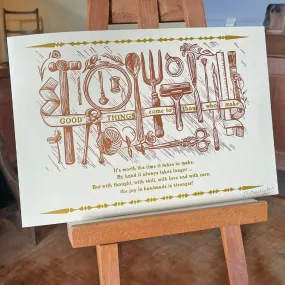 GOOD THINGS come to those who make
It's worth the time it takes to make.
By hand it always takes longer ...
But with thought, with skill, with love and with care,
the joy in handmade is stronger!